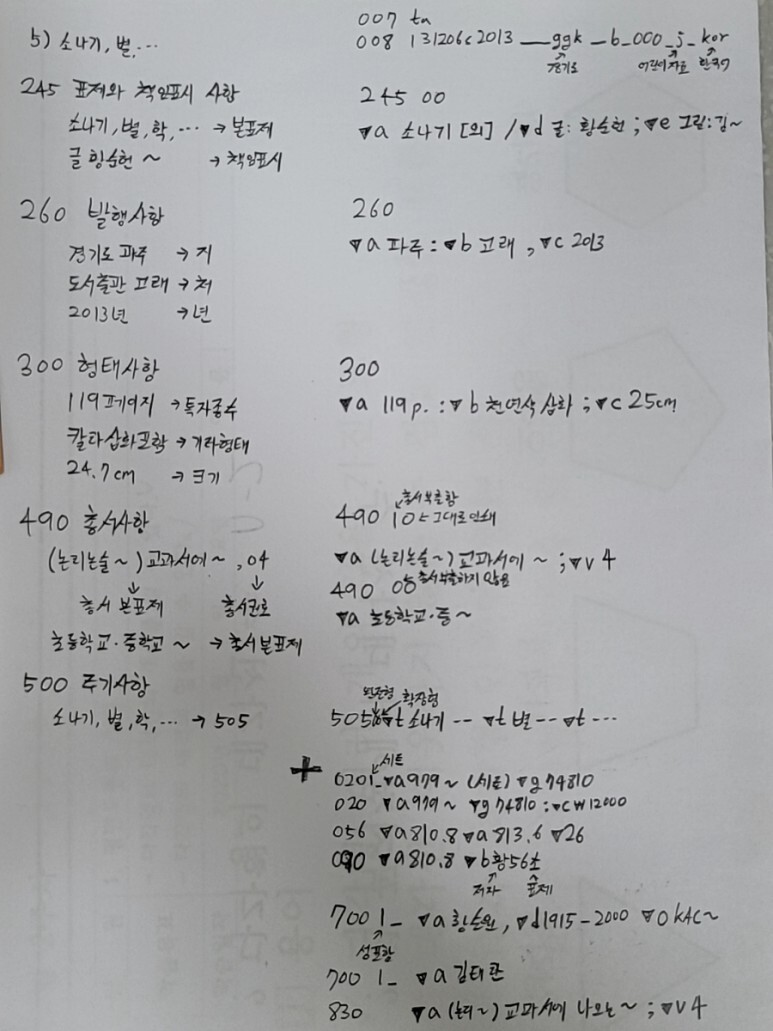 5) 소나기, 별, ...
007 ta
008 131206c2013 ___ggk _ b_000_j_kor
경기도 어린이자료 한국어
245 표제와 책임표시 사항
소나기, 별, 학, ... → 본표제
글 황순헌 ~ → 책임표시
245 00
▼a 소나기 [외] / ▼d 글: 황순헌 ; ▼e 그림: 김~
260 발행사항
경기도 파주 → 지
도서출판 고래 → 처
2013년 → 년
260
▼a 파주 : ▼b 고래 , ▼c 2013
300 형태사항
119페이지 → 특자종수
칼라삽화포함 → 기타형태
24.7cm → 크기
300
▼a 119 p. : ▼b 천연색 삽화 ; ▼c 25cm
490 총서사항
(논리논술~) 교과서에~, 04
총서 본표제 총서권호
초등학교·중학교 ~ → 총서본표제
총서부출함
490 10 그대로 인쇄
▼a (논리논술~) 교과서에 ~ ; ▼v 4
490 00 총서부출하지 않음
▼a 초등학교·중~
500 주기사항
소나기, 별, 학, ... → 505
완전형 확장형
505 ▼t 소나기 -- ▼t 별 -- ▼t ...
+
세트
0201_ ▼a 979~ (세트) ▼g 74810
020 ▼a 979~ ▼g 74810 : ▼c ₩12000
056 ▼a 810.8 ▼a 813.6 ▼26
090 ▼a 810.8 ▼b 황56초
저자 표제
700 1_ ▼a 황순원, ▼d 1915-2000 ▼0 KAC~
성포함
700 1_ ▼a 김태란
830 ▼a (논리~) 교과서에 나오는~ ; ▼v 4